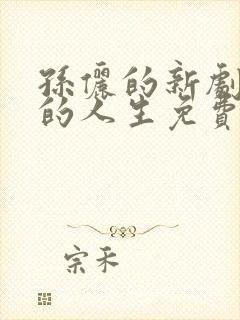 孫儷的新劇
的人生免費
宗禾